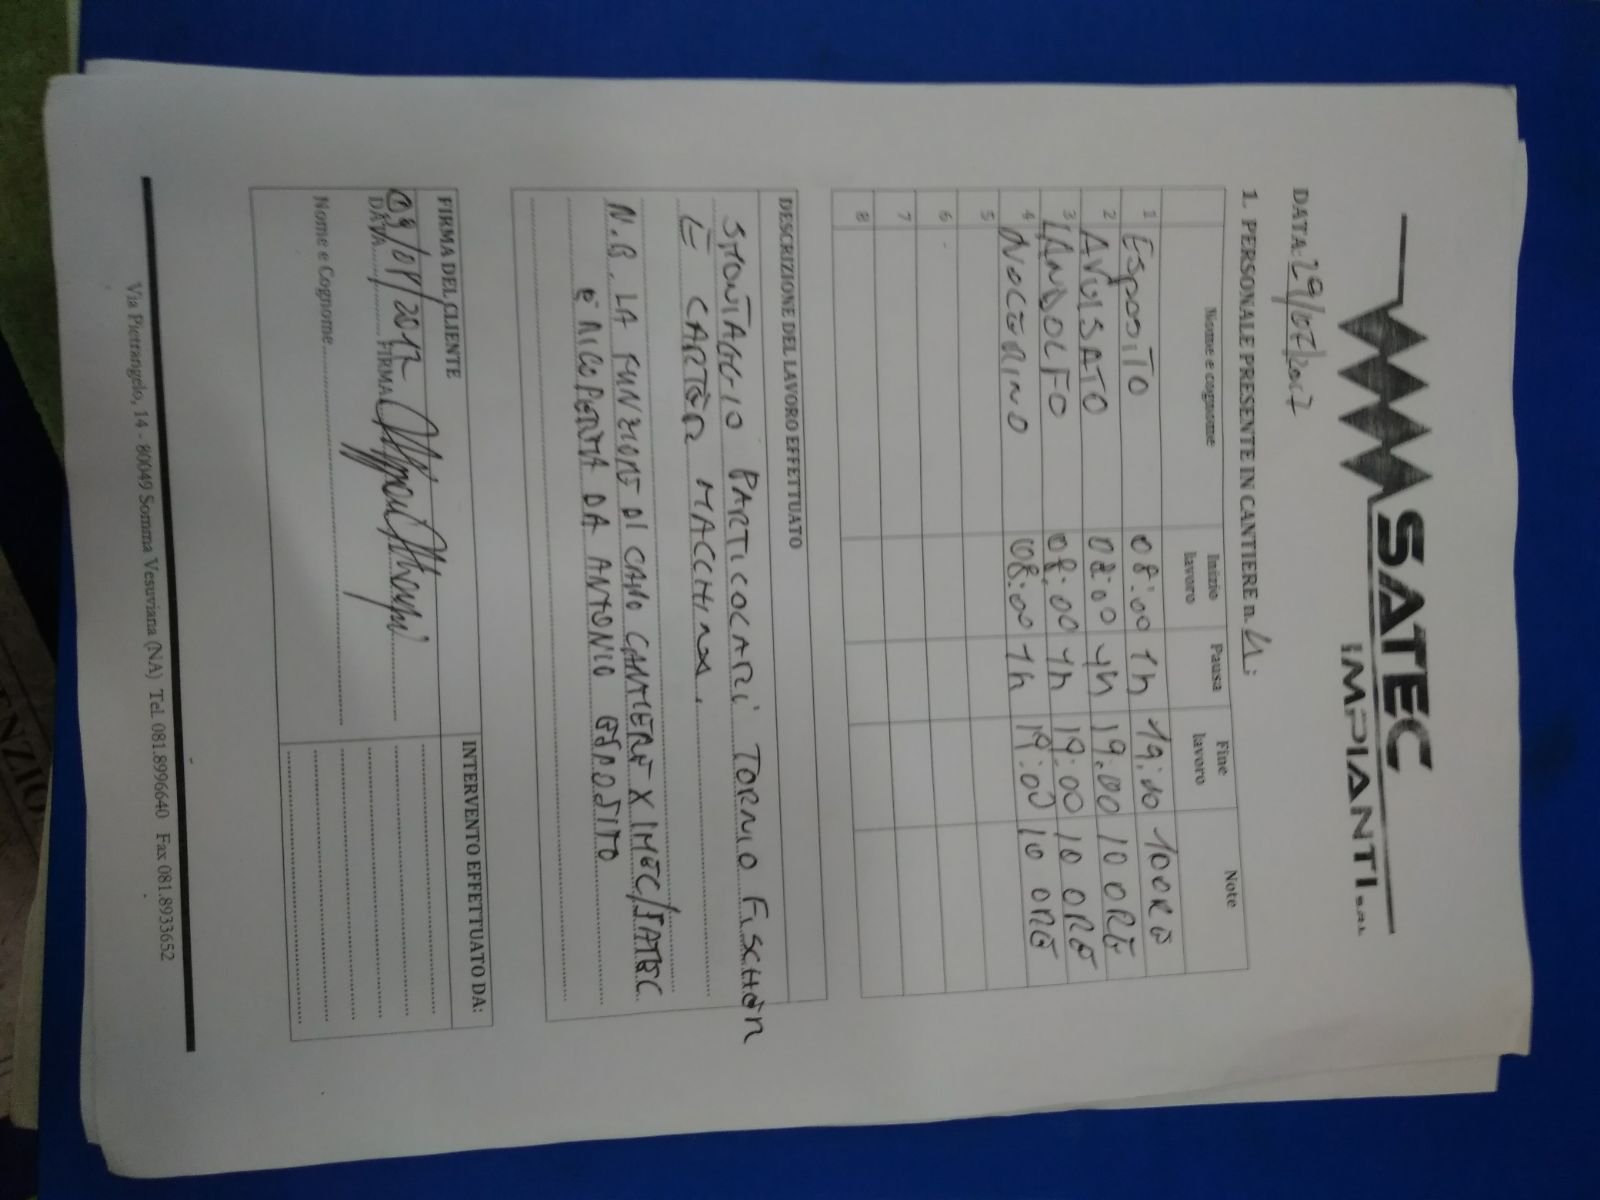 SATEC
IMPIANTI s.r.l.
DATA: 29/07/2017
1. PERSONALE PRESENTE IN CANTIERE n. 4:
Nome e cognome Inizio lavoro Pausa Fine lavoro Note
1 ESPOSITO 08:00 1h 19:00 10 ORE
2 AVVISATO 08:00 1h 19:00 10 ORE
3 LANDOLFO 08:00 1h 19:00 10 ORE
4 NOCERINO 08:00 1h 19:00 10 ORE
5
6
7
8
DESCRIZIONE DEL LAVORO EFFETTUATO
SMONTAGGIO PARTICOLARI TORNIO FISCHER
E CARTER MACCHINA.
N.B. LA FUNZIONE DI CAPO CANTIERE X IMEC/SATEC
È RICOPERTA DA ANTONIO ESPOSITO
FIRMA DEL CLIENTE INTERVENTO EFFETTUATO DA:
DATA FIRMA
Nome e Cognome
Via Pietrangelo, 14 - 80049 Somma Vesuviana (NA) Tel. 081.8996640 Fax 081.8933652